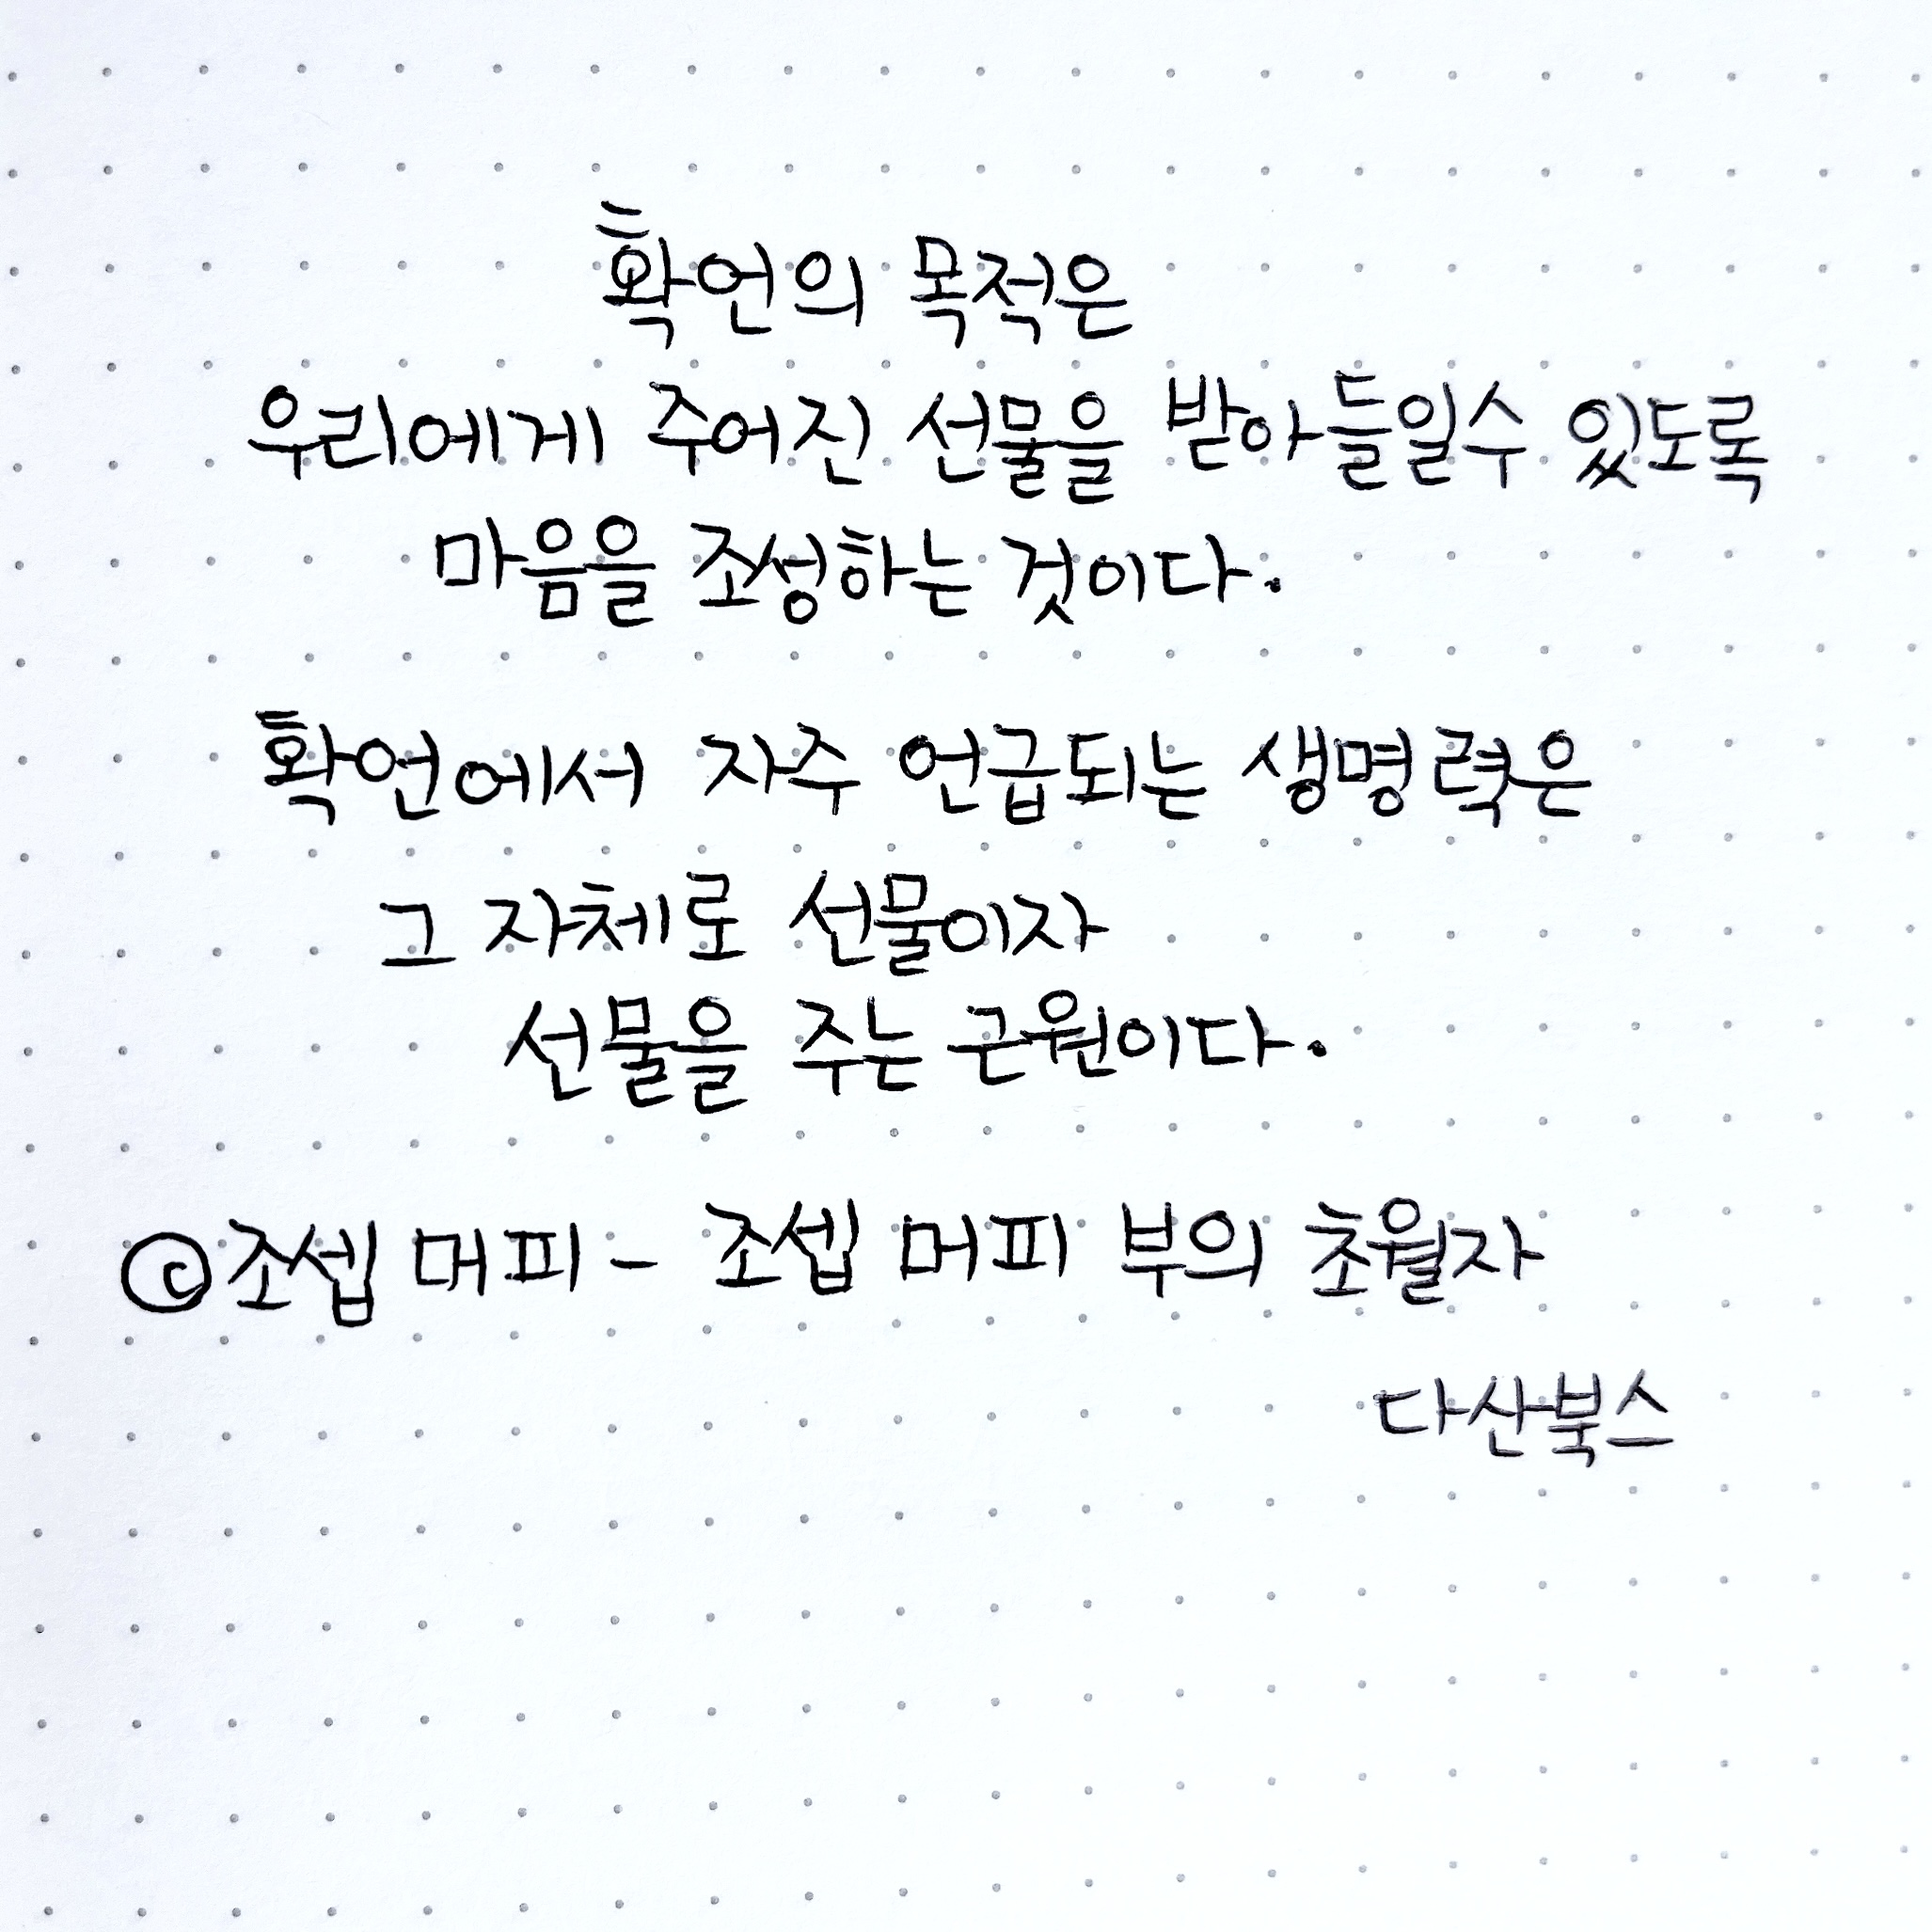 확언의 목적은
우리에게 주어진 선물을 받아들일수 있도록
마음을 조성하는 것이다.
확언에서 자주 언급되는 생명력은
그 자체로 선물이자
선물을 주는 근원이다.
©조셉 머피 - 조셉 머피 부의 초월자
다산북스